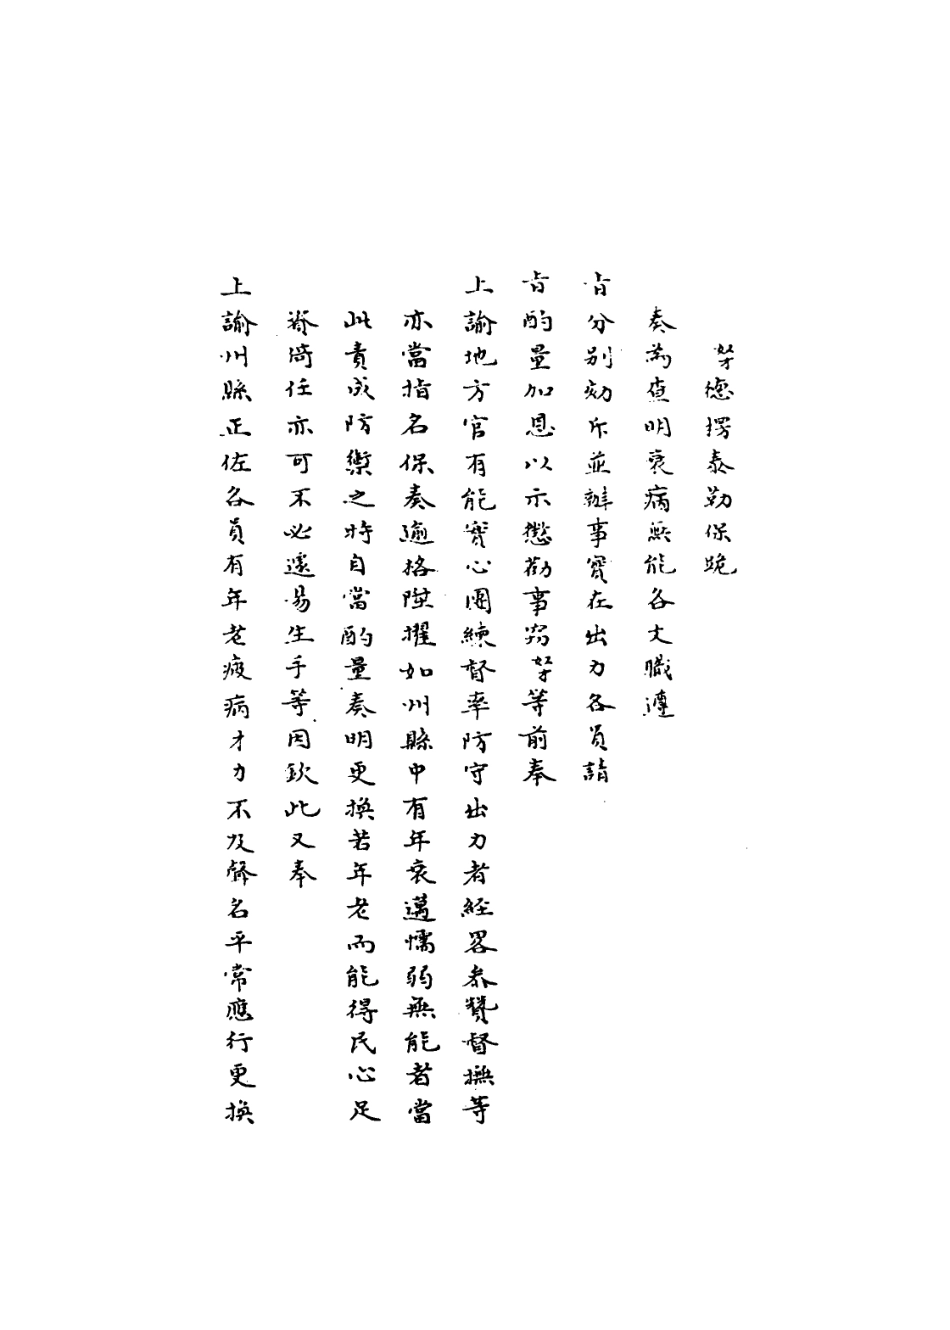 奴才德楞泰勒保跪
奏為查明衰病無能各文職遵
旨分別劾斥並辦事實在出力各員請
旨酌量加恩以示懲勸事窃奴才等前奉
上諭地方官有能實心團練督率防守出力者經畧叅贊督撫等
亦當指名保奏逾格陞擢如州縣中有年衰邁懦弱無能者當
此責成防禦之時自當酌量奏明更換若年老而能得民心足
資倚任亦可不必遽易生手等因欽此又奉
上諭州縣正佐各員有年老疲病才力不及聲名平常應行更換